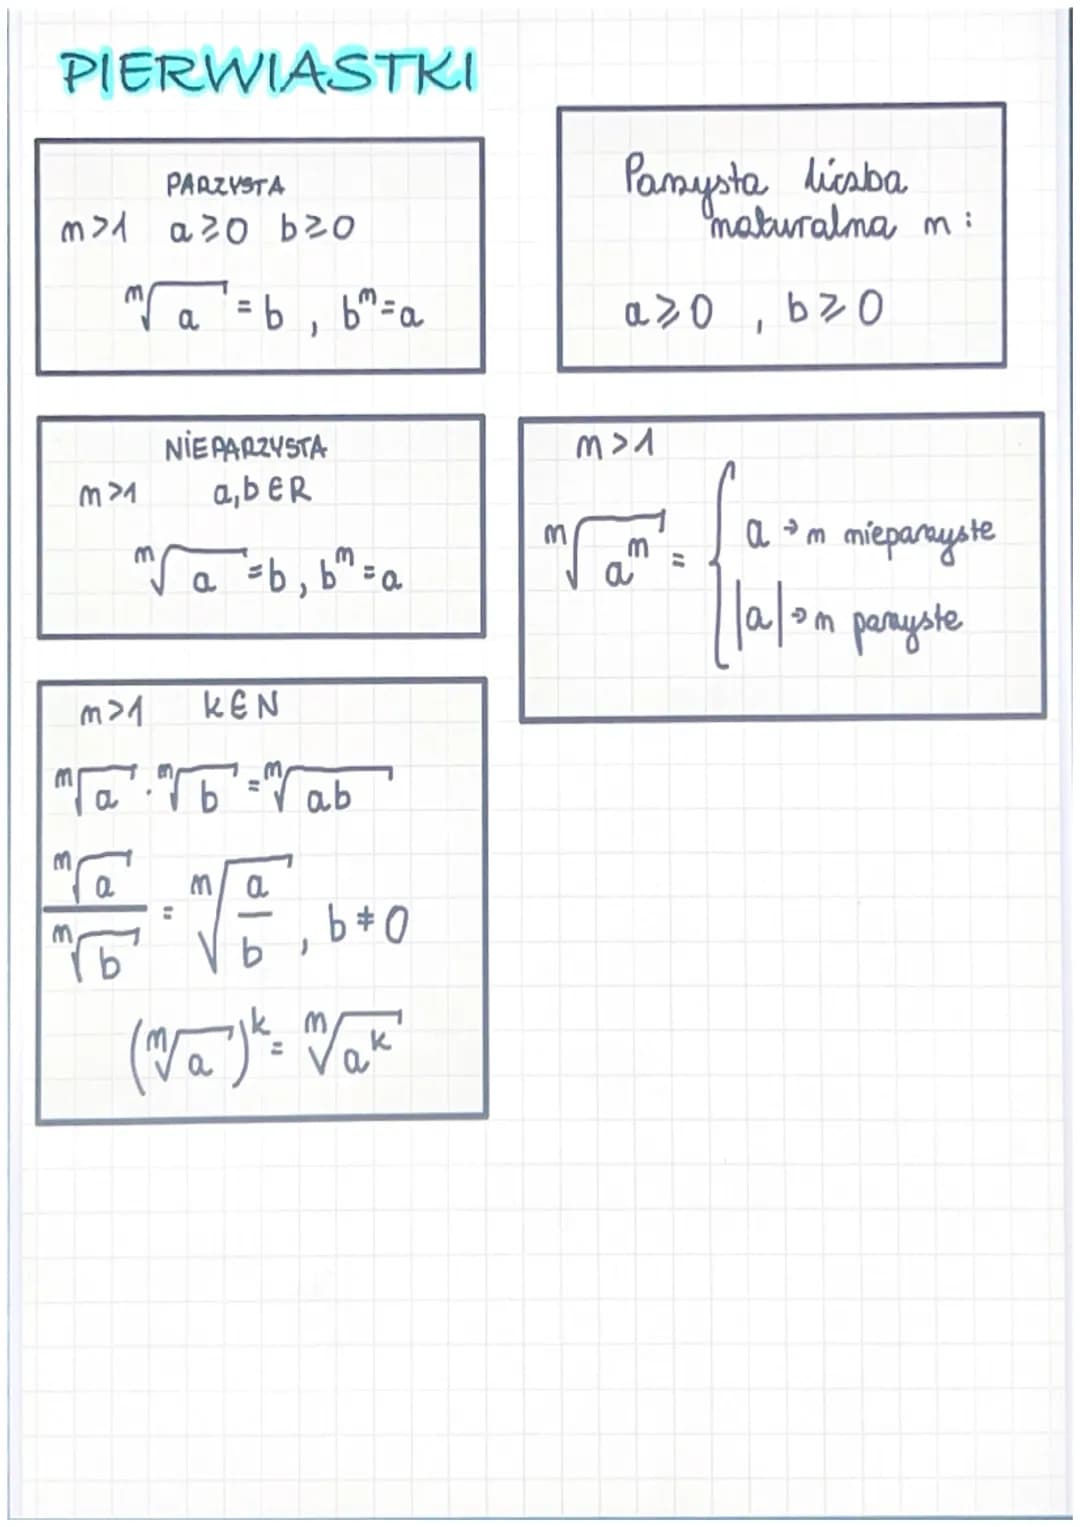 PIERWIASTKI
PARZYSTA
n>1 a≥0 b≥0
ⁿ√a = b, bⁿ=a
Parzysta liczba
naturalna n:
a≥0, b≥0
NIEPARZYSTA
n>1 a,b∈R
ⁿ√a = b, bⁿ=a
n>1
ⁿ√aⁿ = { a → n nieparzyste
|a| → n parzyste
n>1 k∈N
ⁿ√a · ⁿ√b = ⁿ√ab
ⁿ√a / ⁿ√b = ⁿ√(a/b), b≠0
(ⁿ√a)ᵏ = ⁿ√aᵏ